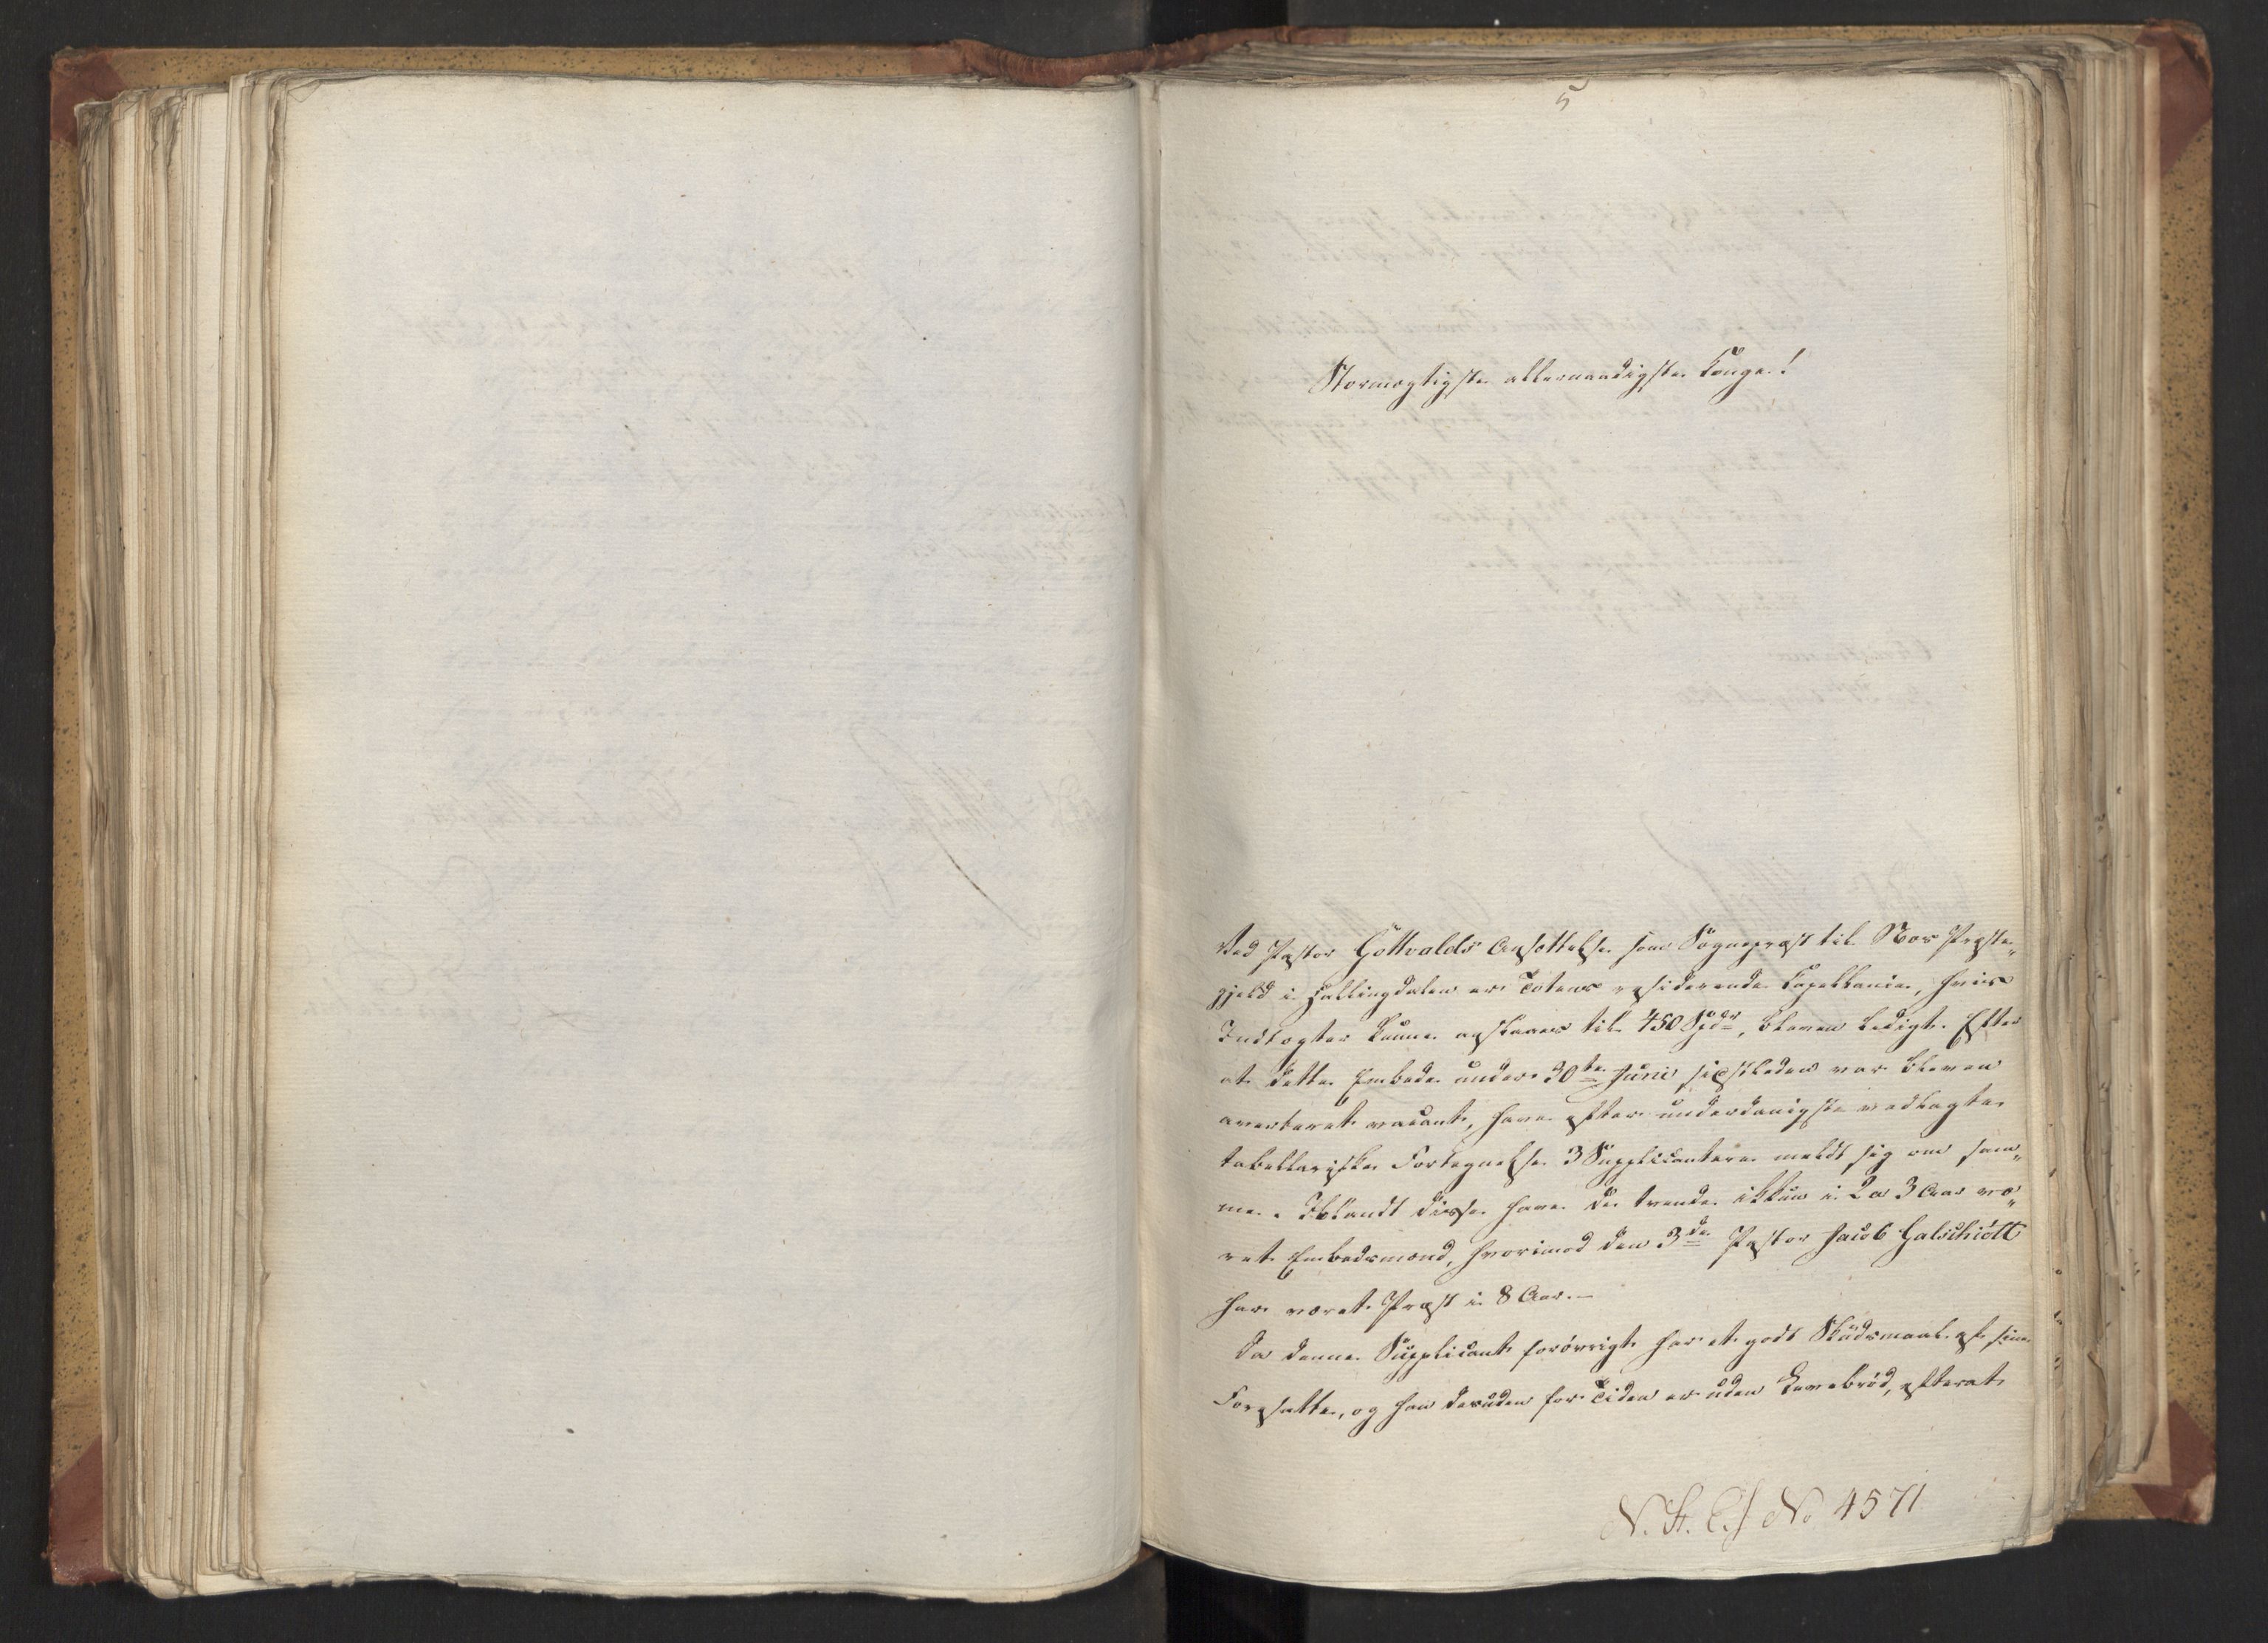 5
Stormægtigste allernaadigste Konge!
Ved Pastor Gottvalds Ansættelse som Sognepræst til Næs Præste„
gjeld i Hallingdalen er Totens residerende Capellanie, hvis
Indtægter kunne ansláaes til 450 Spdr, bleven ledigt. Efter
at dette Embede under 30te Juni sidstleden var bleven
averteret vacant, have efter underdanigst vedlagte
tabellariske Fortegnelse 3 Supplicantere meldt sig om sam„
me. Iblandt disse have de tvende ikkun i 2 a 3 Aar væ„
ret Embedsmænd, hvorimod den 3de Pastor Jacob Galschiött
har været Præst i 8 Aar.-
Da denne Supplicant forövrigt har et godt Skudsmaal af sine
Foresatte, og han desuden for Tiden er uden Levebröd, efterat
N. St. C. J No 4571